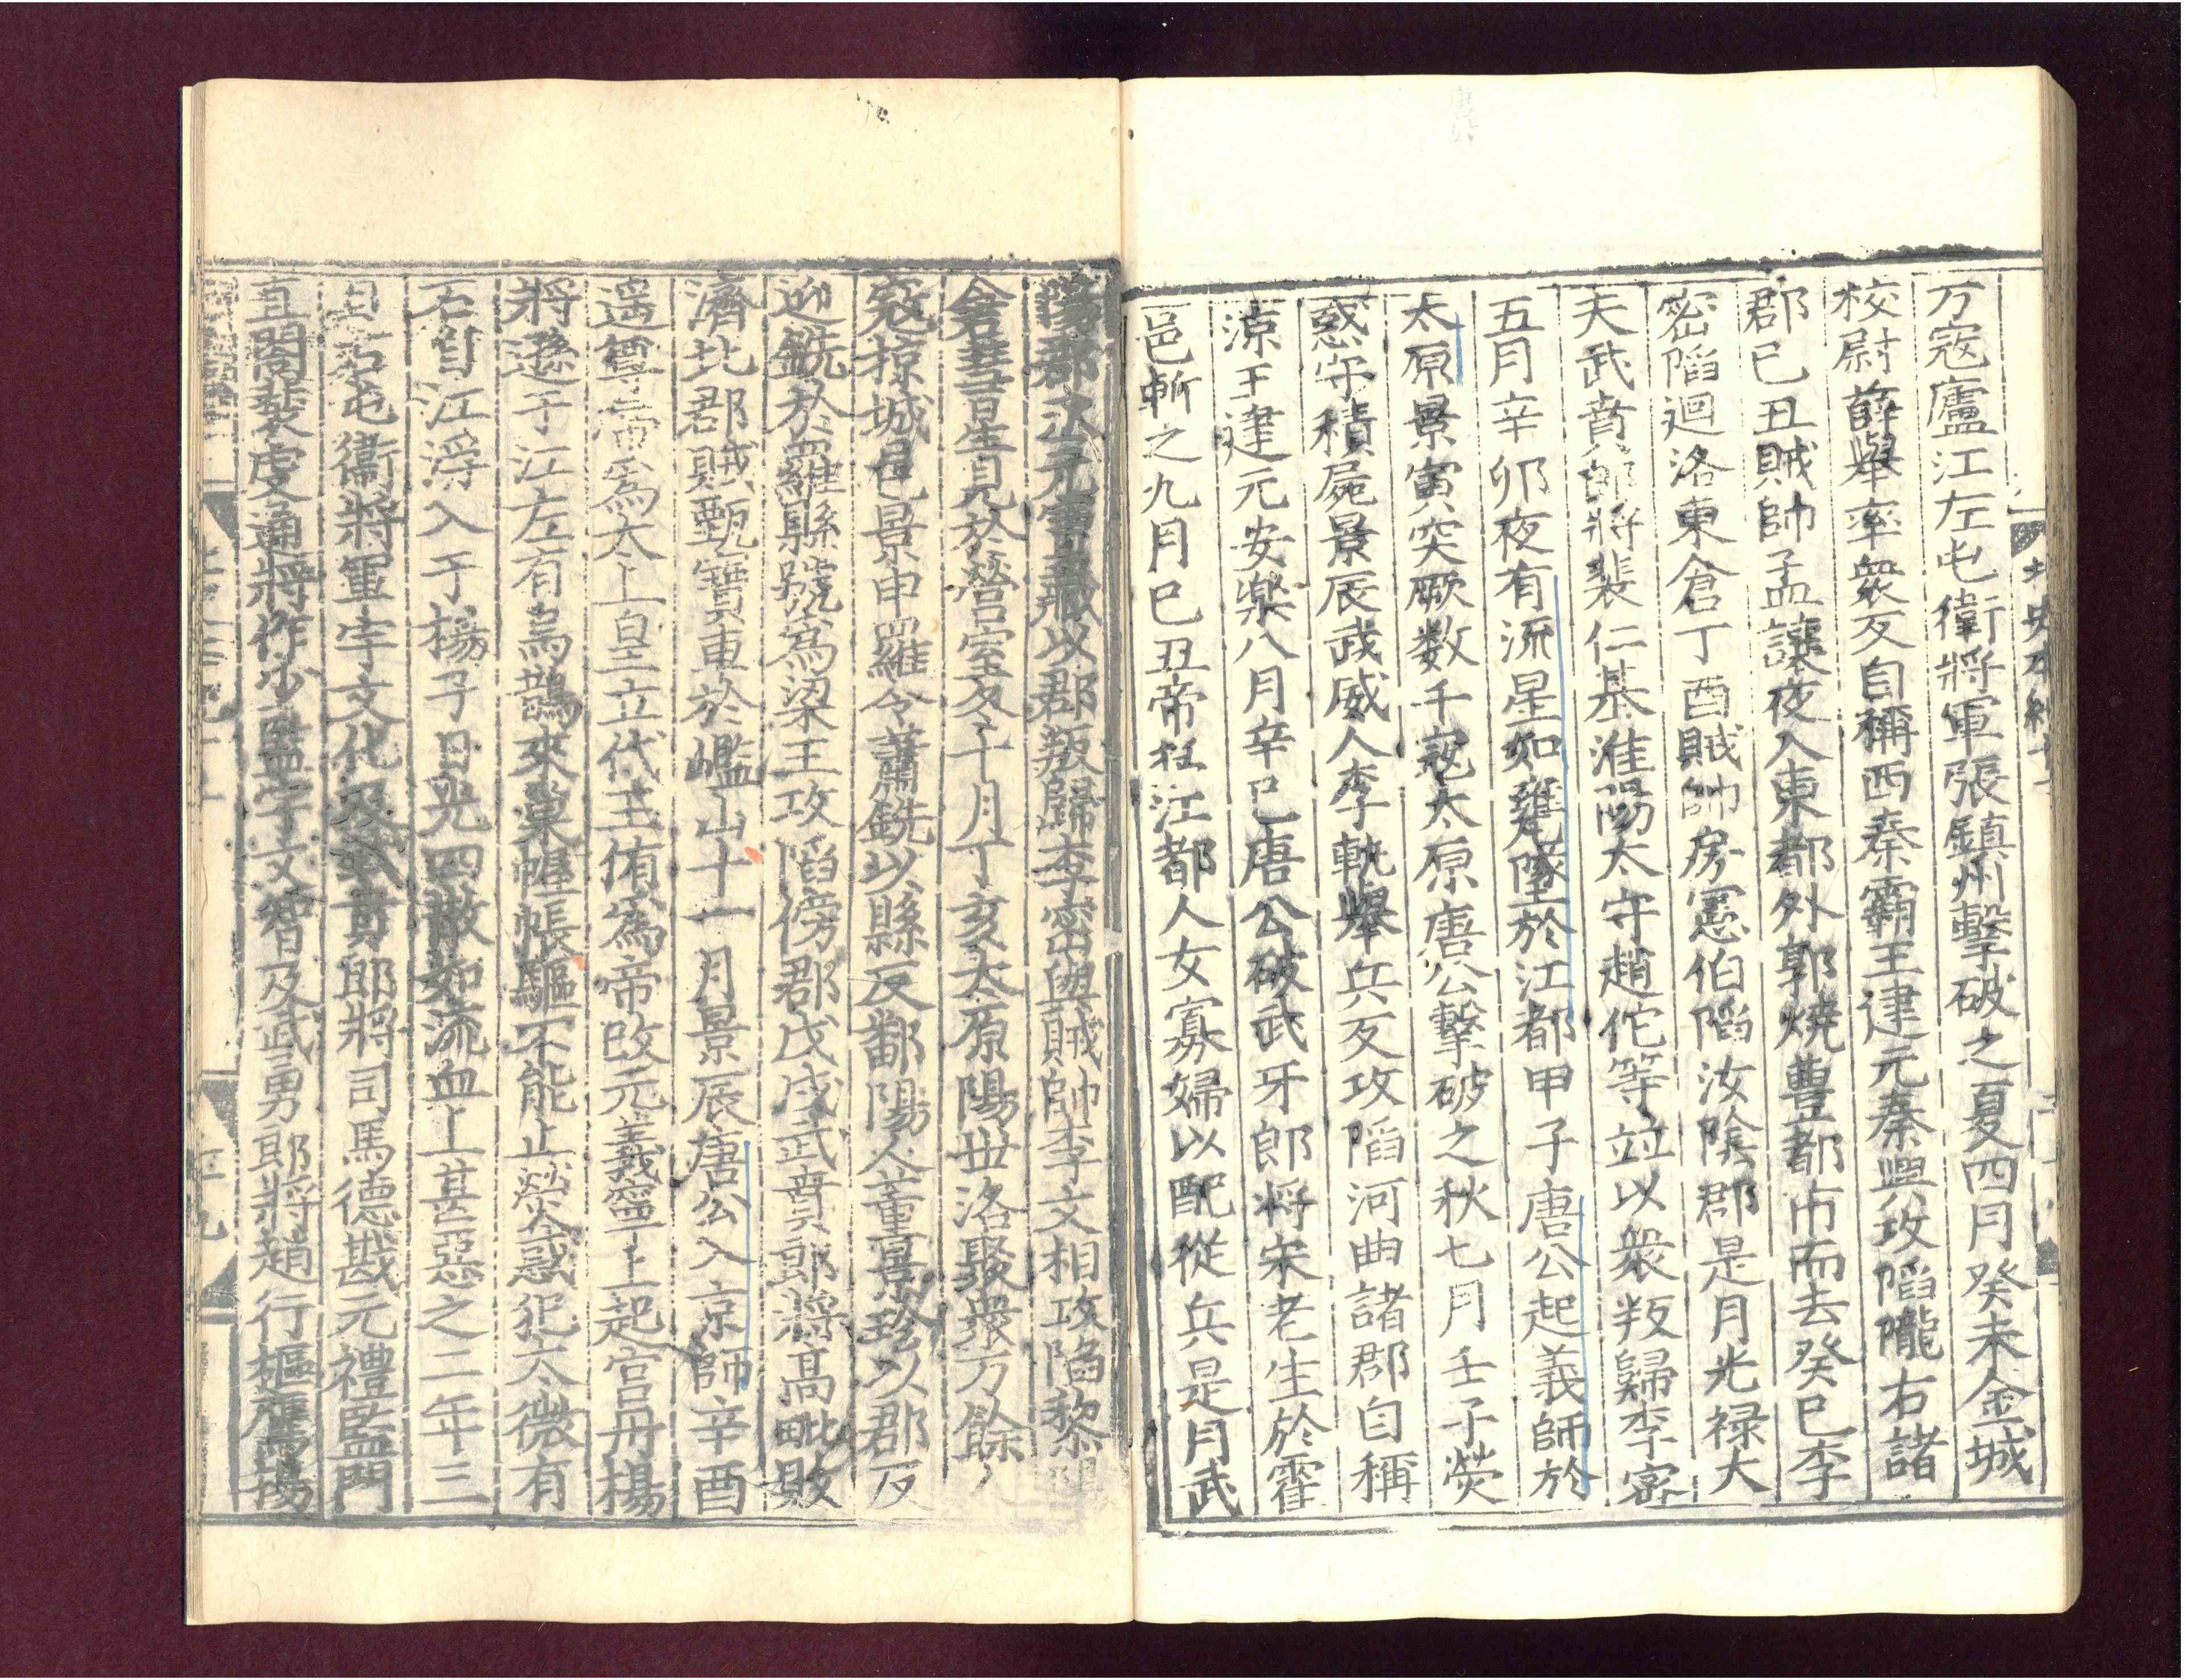 万寇廬江左屯衛將軍張鎮州擊破之夏四月癸未金城
校尉薛舉率衆反自稱西秦霸王建元秦興攻陷隴右諸
郡己丑賊帥孟讓夜入東都外郭燒豊都市而去癸巳李
密陷迴洛東倉丁酉賊帥房憲伯陷汝陰郡是月光禄大
夫武賁郎將裴仁基淮陽太守趙佗等並以衆叛歸李密
五月辛卯夜有流星如甕墜於江都甲子唐公起義師於
太原景寅突厥数千寇太原唐公擊破之秋七月壬子熒
惑守積屍景辰武威人李軌舉兵反攻陷河曲諸郡自稱
涼王建元安樂八月辛巳唐公破武牙郎将宋老生於霍
邑斬之九月己丑帝在江都人女寡婦以配從兵是月武
陽郡丞元寶藏以郡叛歸李密與賊帥李文相攻陷黎陽
倉彗星見於營室冬十月丁亥太原陽世洛聚衆万餘
寇掠城邑景申羅令蕭銑以縣反鄱陽人董景珍以郡反
迎銑於羅縣號爲梁王攻陷傍郡戊戌武賁郎將高毗敗
濟北郡賊甄寶車於㟻山十一月景辰唐公入京師辛酉
遥尊帝爲太上皇立代王侑爲帝改元義寧上起宫丹楊
將遜于江左有烏鵲來巢幄帳驅不能止熒惑犯太微有
石自江浮入于楊子日光四散如流血上甚惡之二年三
月右屯衛將軍宇文化及武賁郎將司馬德戡元禮監門
直閣裴虔通將作少監宇文智及武勇郎將趙行樞鷹揚